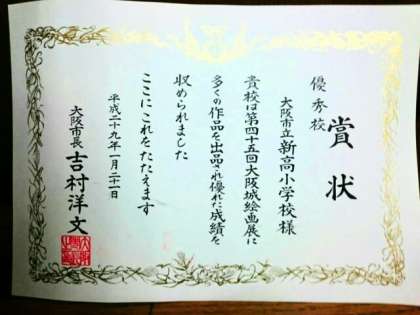 賞状
優秀校
大阪市立新高小学校様
貴校は第四十五回大阪城絵画展に
多くの作品を出品され優れた成績を
収められました
ここにこれをたたえます
平成二十九年一月二十一日
大阪市長 吉村洋文